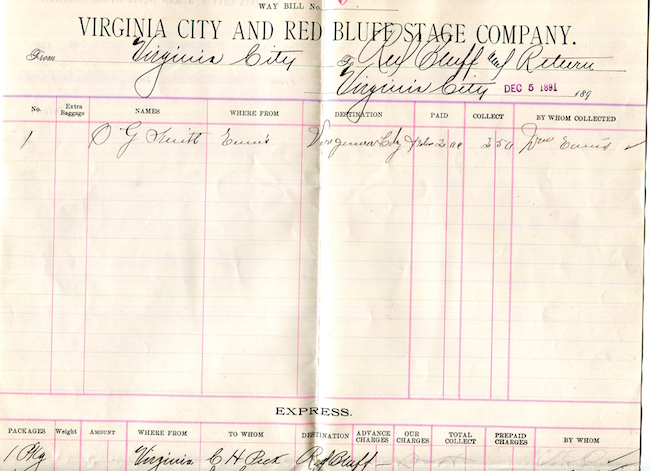 WAY BILL No.
VIRGINIA CITY AND RED BLUFF STAGE COMPANY.
From Virginia City To Red Bluff and Return
Virginia City DEC 5 1891 189
No. Extra Baggage NAMES WHERE FROM DESTINATION PAID COLLECT BY WHOM COLLECTED
1 O G Smith Ennis 2 50 Wm Ennis
EXPRESS.
PACKAGES Weight AMOUNT WHERE FROM TO WHOM DESTINATION ADVANCE CHARGES OUR CHARGES TOTAL COLLECT PREPAID CHARGES BY WHOM
1 Pkg Virginia C H Rd Bluff